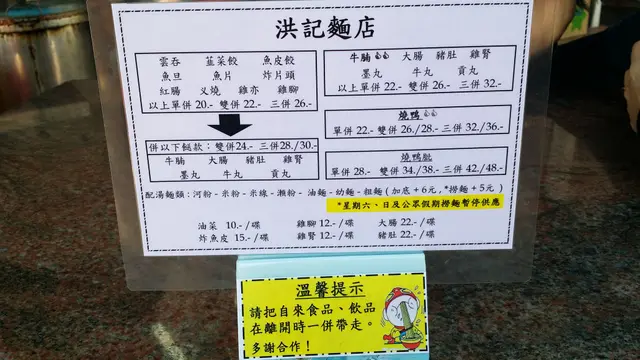 洪記麵店
雲吞 韮菜餃 魚皮餃
魚旦 魚片 炸片頭
紅腸 义燒 雞亦 雞腳
以上單併20.- 雙併 22.- 三併 26.-
併以下餸款：雙併24.- 三併28./30.-
牛腩 大腸 豬肚 雞腎
墨丸 牛丸 貢丸
牛腩 大腸 豬肚 雞腎
墨丸 牛丸 貢丸
以上單併 22.- 雙併 26.- 三併 32.-
燒鴨
單併 22.- 雙併 26./28.- 三併 32./36.-
燒鴨髀
單併 28.- 雙併 34./38.- 三併 42./48.-
配湯麵類：河粉 - 米粉 - 米線 - 瀨粉 - 油麵 - 幼麵 - 粗麵 ( 加底 + 6元 , *撈麵 + 5元 )
*星期六、日及公眾假期撈麵暫停供應
油菜 10.-/碟 雞腳 12.-/碟 大腸 22.-/碟
炸魚皮 15.-/碟 雞腎 12.-/碟 豬肚 22.-/碟
溫馨提示
請把自來食品、飲品
在離開時一併帶走。
多謝合作！